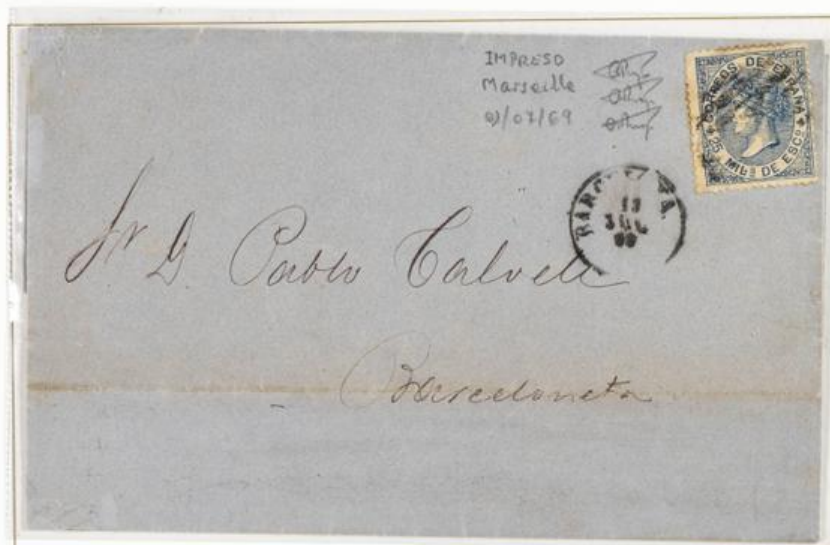 IMPRESO
Marseille
CORREOS DE ESPAÑA
25 MILS DE ESCO
BARCELONA.
JUL
69
Sr D. Pablo Calvell
Barceloneta